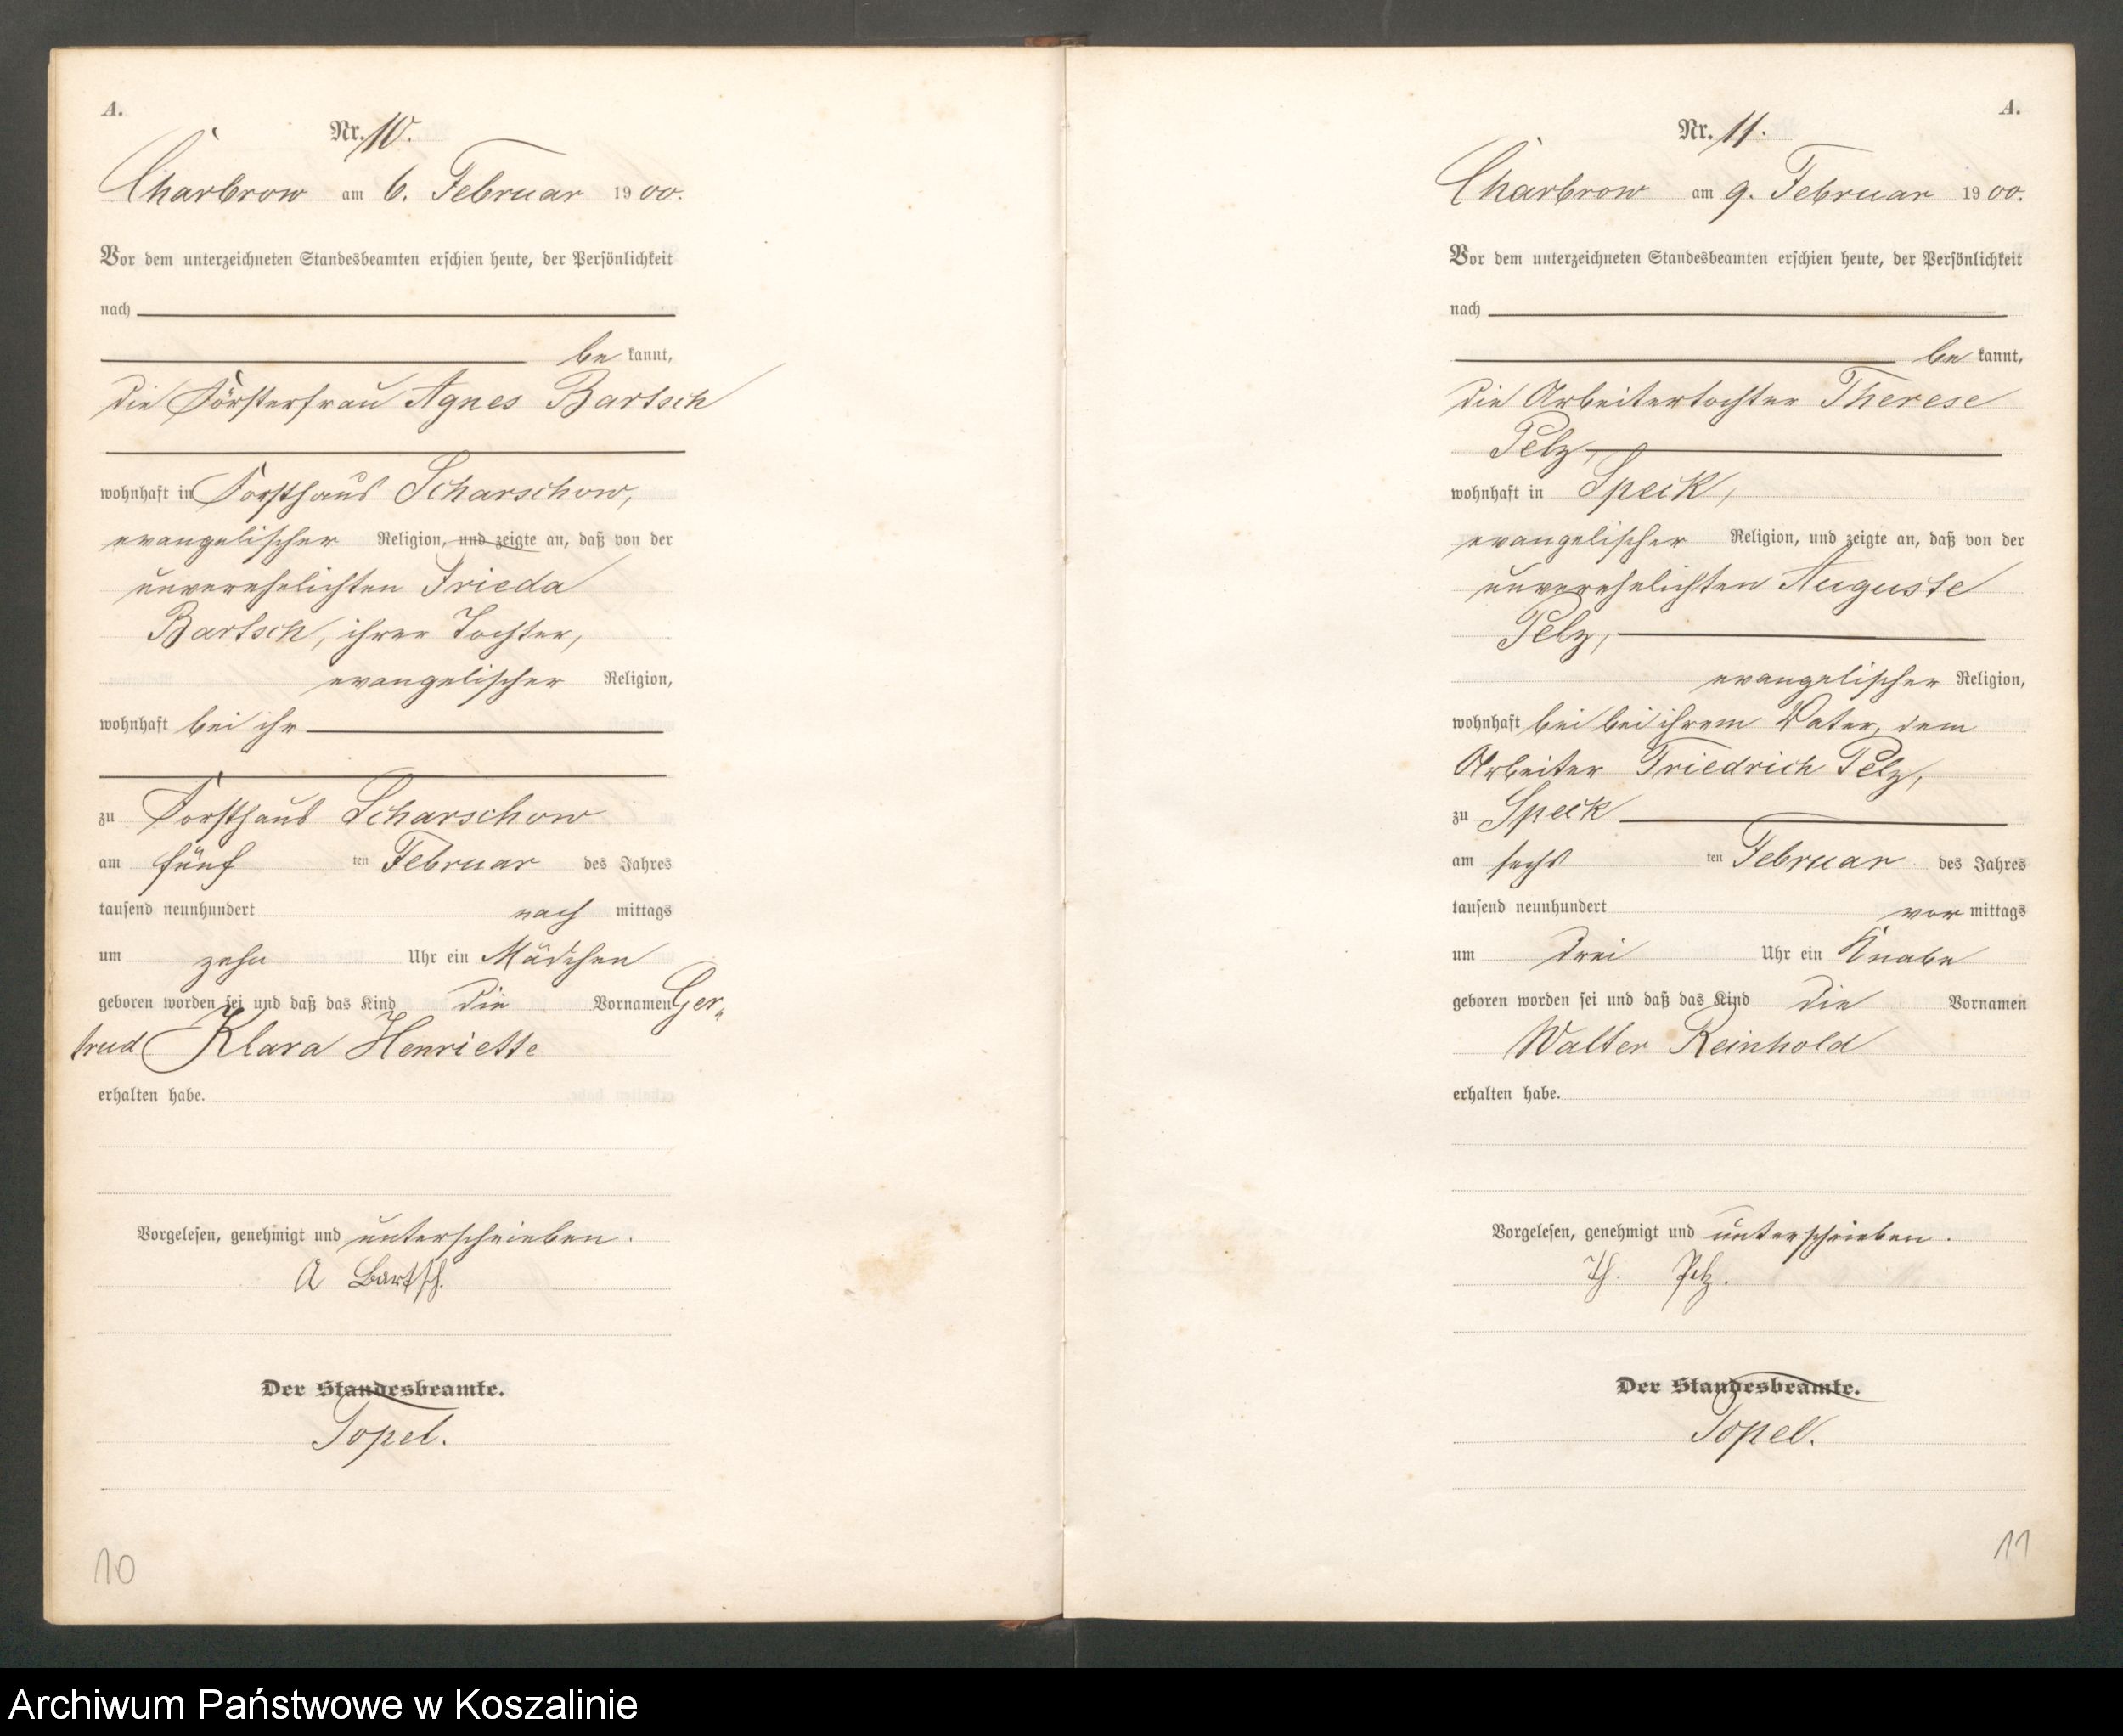 A.
Nr. 10.
Charbrow am 6. Februar 1900.
Vor dem unterzeichneten Standesbeamten erschien heute, der Persönlichkeit
nach
be kannt,
die Försterfrau Agnes Bartsch
wohnhaft in Forsthaus Scharschow,
evangelischer Religion, und zeigte an, daß von der
unverehelichten Frieda
Bartsch, ihrer Tochter,
evangelischer Religion,
wohnhaft bei ihr
zu Forsthaus Scharschow
am fünf ten Februar des Jahres
tausend neunhundert nach mittags
um zehn Uhr ein Mädchen
geboren worden sei und daß das Kind die Vornamen Ger„
trud Klara Henriette
erhalten habe.
Vorgelesen, genehmigt und unterschrieben.
A Bartsch.
Der Standesbeamte.
Topel.
10
A.
Nr. 11.
Charbrow am 9. Februar 1900.
Vor dem unterzeichneten Standesbeamten erschien heute, der Persönlichkeit
nach
be kannt,
die Arbeitertochter Therese
Pelz,
wohnhaft in Speck,
evangelischer Religion, und zeigte an, daß von der
unverehelichten Auguste
Pelz,
evangelischer Religion,
wohnhaft bei bei ihrem Vater, dem
Arbeiter Friedrich Pelz,
zu Speck
am sechs ten Februar des Jahres
tausend neunhundert vor mittags
um drei Uhr ein Knabe
geboren worden sei und daß das Kind die Vornamen
Walter Reinhold
erhalten habe.
Vorgelesen, genehmigt und unterschrieben.
Th. Pelz.
Der Standesbeamte.
Topel.
11
Archiwum Państwowe w Koszalinie